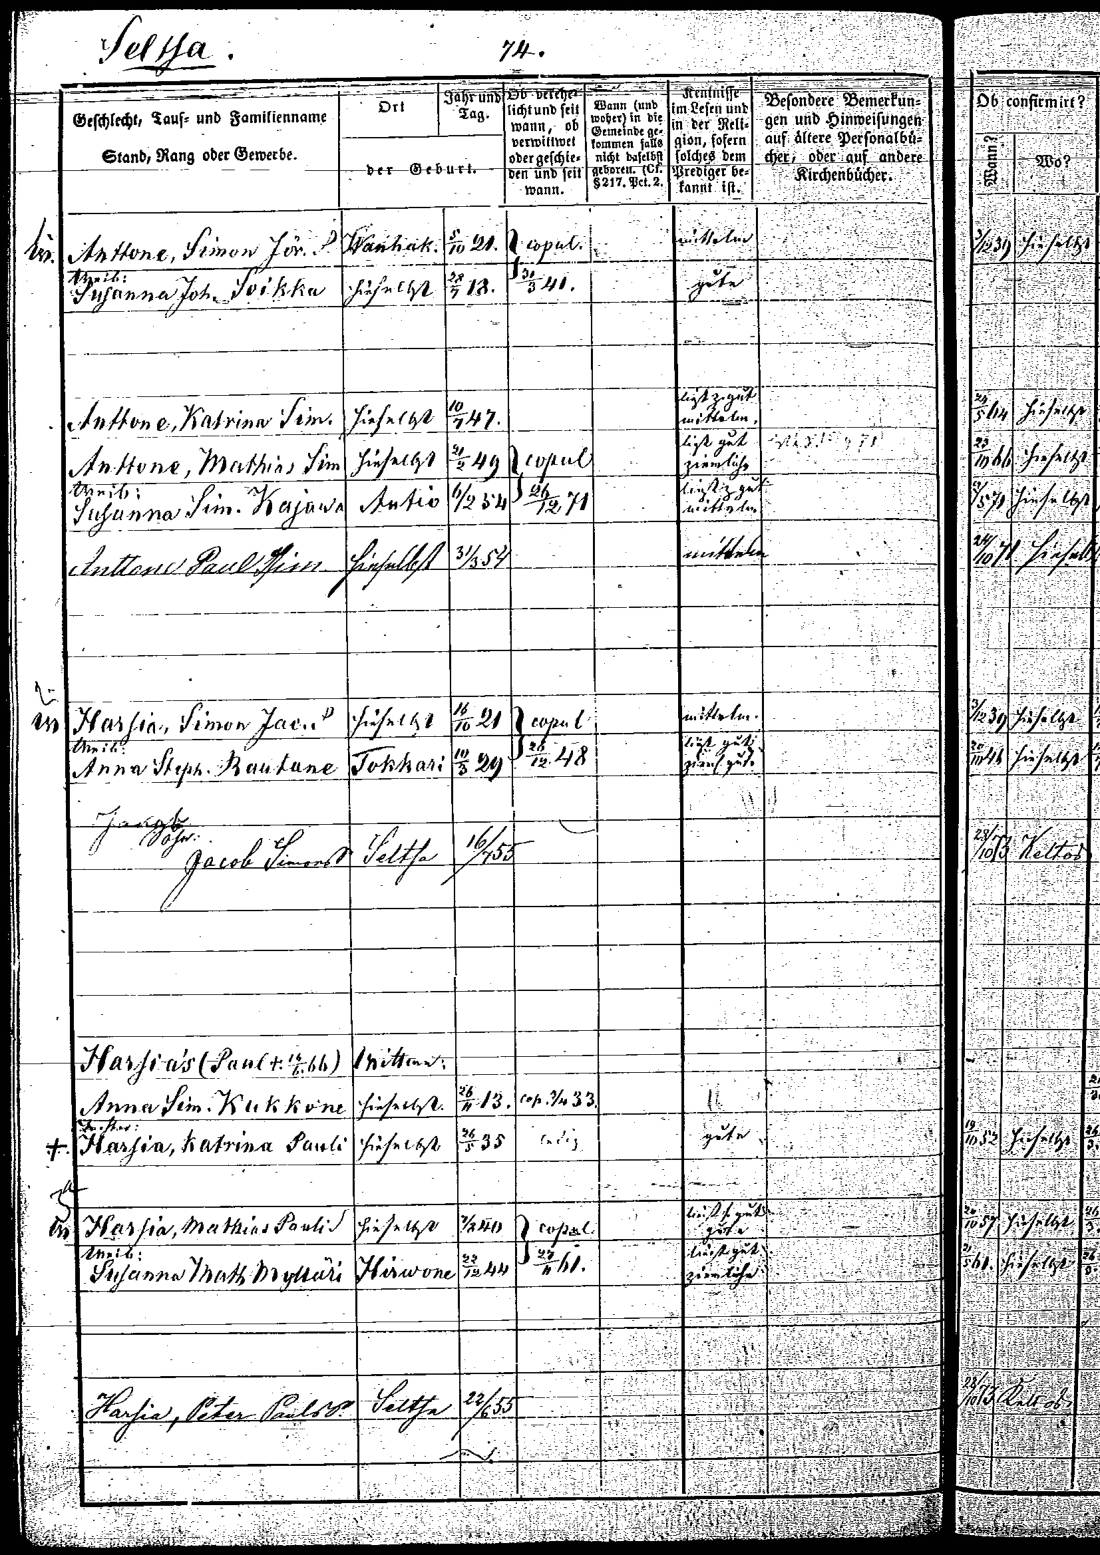 Seltsa.
74.
Geschlecht, Tauf- und Familienname
Stand, Rang oder Gewerbe.
Ort
Jahr und Tag.
der Geburt.
Ob verehe-
licht und seit
wann, ob
verwittwet
oder geschie-
den und seit
wann.
Wann (und
woher) in die
Gemeinde ge-
kommen falls
nicht daselbst
geboren. (Cf.
§ 217. Pct. 2.
Kentnisse
im Lesen und
in der Reli-
gion, sofern
solches dem
Prediger be-
kannt ist.
Besondere Bemerkun-
gen und Hinweisungen
auf ältere Personalbü-
cher, oder auf andere
Kirchenbücher.
Ob confirmirt?
Wann?
Wo?
W. Anttone, Simon Jör. Wanhak. 5/10 21. copul. mittelm 3/12 39 hieselbst
Weib:
Susanna Joh. Soikka hieselbst 28/7 18. 31/3 41. gute
Anttone, Katrina Sim. hieselbst 10/7 47. liest z. gut mittelm. 24/5 64 hieselbst
Anttone, Mathias Sim hieselbst 21/2 49 copul liest gut ziemliche 23/10 66 hieselbst
Weib:
Susanna Sim. Kajawa Antio 6/2 54 26/12 71 liest z gut mittelm 9/5 71 hieselbst
Anttone Paul Sim hieselbst 31/3 54 mittelm 24/10 71 hieselbst
W Harsia, Simon Jac. hieselbst 16/10 21 copul mittelm. 3/12 39 hieselbst
Weib:
Anna Steph. Rautane Tokkari 10/3 29 26/12 48 liest gut ziem. gute 20/10 46 hieselbst
Jakob
Sohn:
Jacob Simons Seltsa 16/7 55 28/10 73 Keltos
Harsia's (Paul + 14/5 66) Wittwe:
Anna Sim. Kukkone hieselbst. 26/11 13. cop. 7/4 33.
Tochter:
+ Harsia, Katrina Pauli hieselbst 26/5 35 ledig gute 19/10 52 hieselbst
W Harsia, Mathias Pauli hieselbst 7/2 40 copul liest s gut gute 20/10 57 hieselbst
Weib:
Susanna Math. Myttäri Hirwone 22/12 44 27/11 61. liest gut ziemliche 21/5 61. hieselbst
Harsia, Peter Pauls Seltsa 22/6 55 28/10 73 Keltos